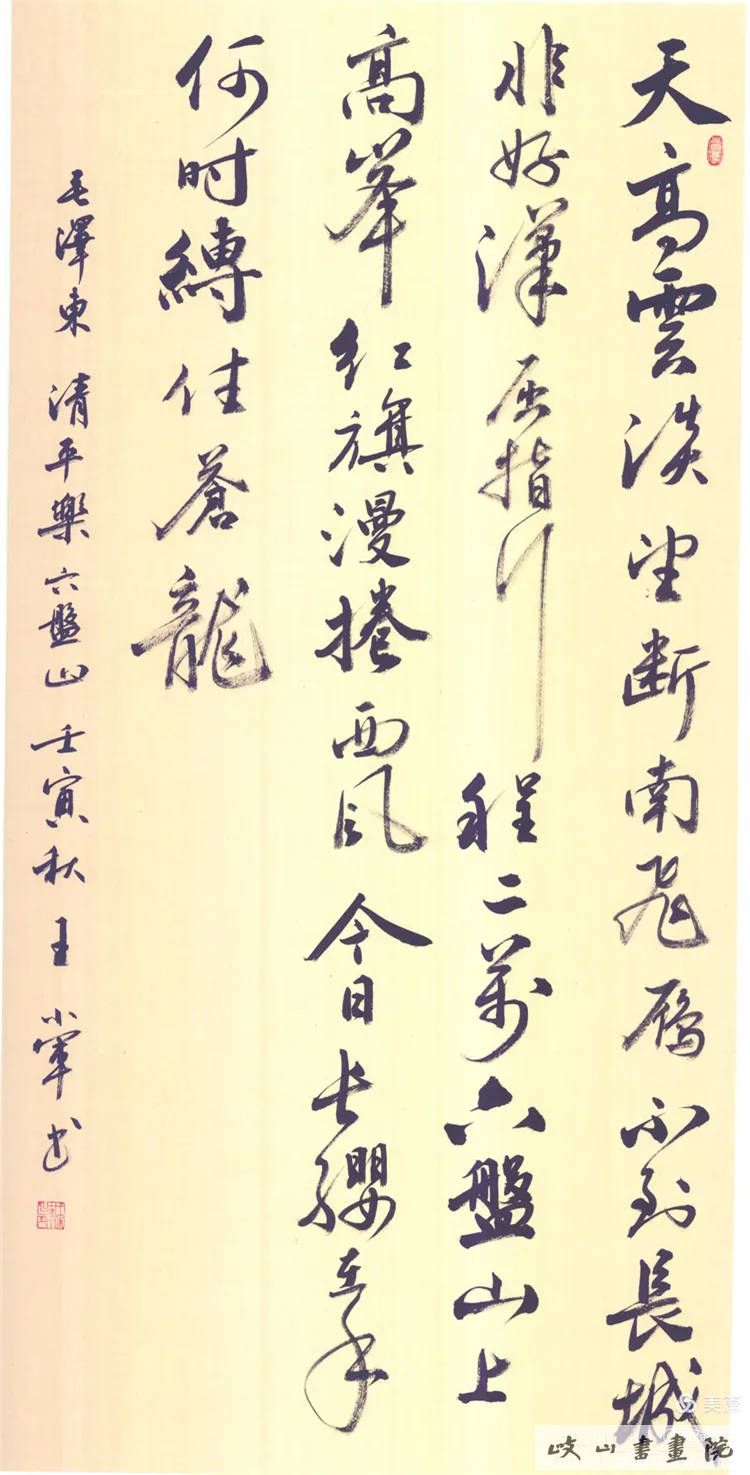 天高雲淡望断南飛雁不到長城
非好漢屈指行程二萬六盤山上
高峯红旗漫捲西风今日長纓在手
何时縛住蒼龍
毛澤東清平樂六盤山壬寅秋王小軍书
美篇
岐山書畫院